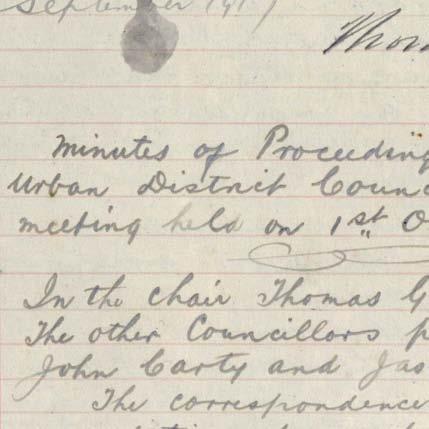 September 191
Minutes of Proceeding
Urban District Counc
meeting held on 1st O
In the chair Thomas G
The other Councillors p
John Carty and Jas
The correspondence